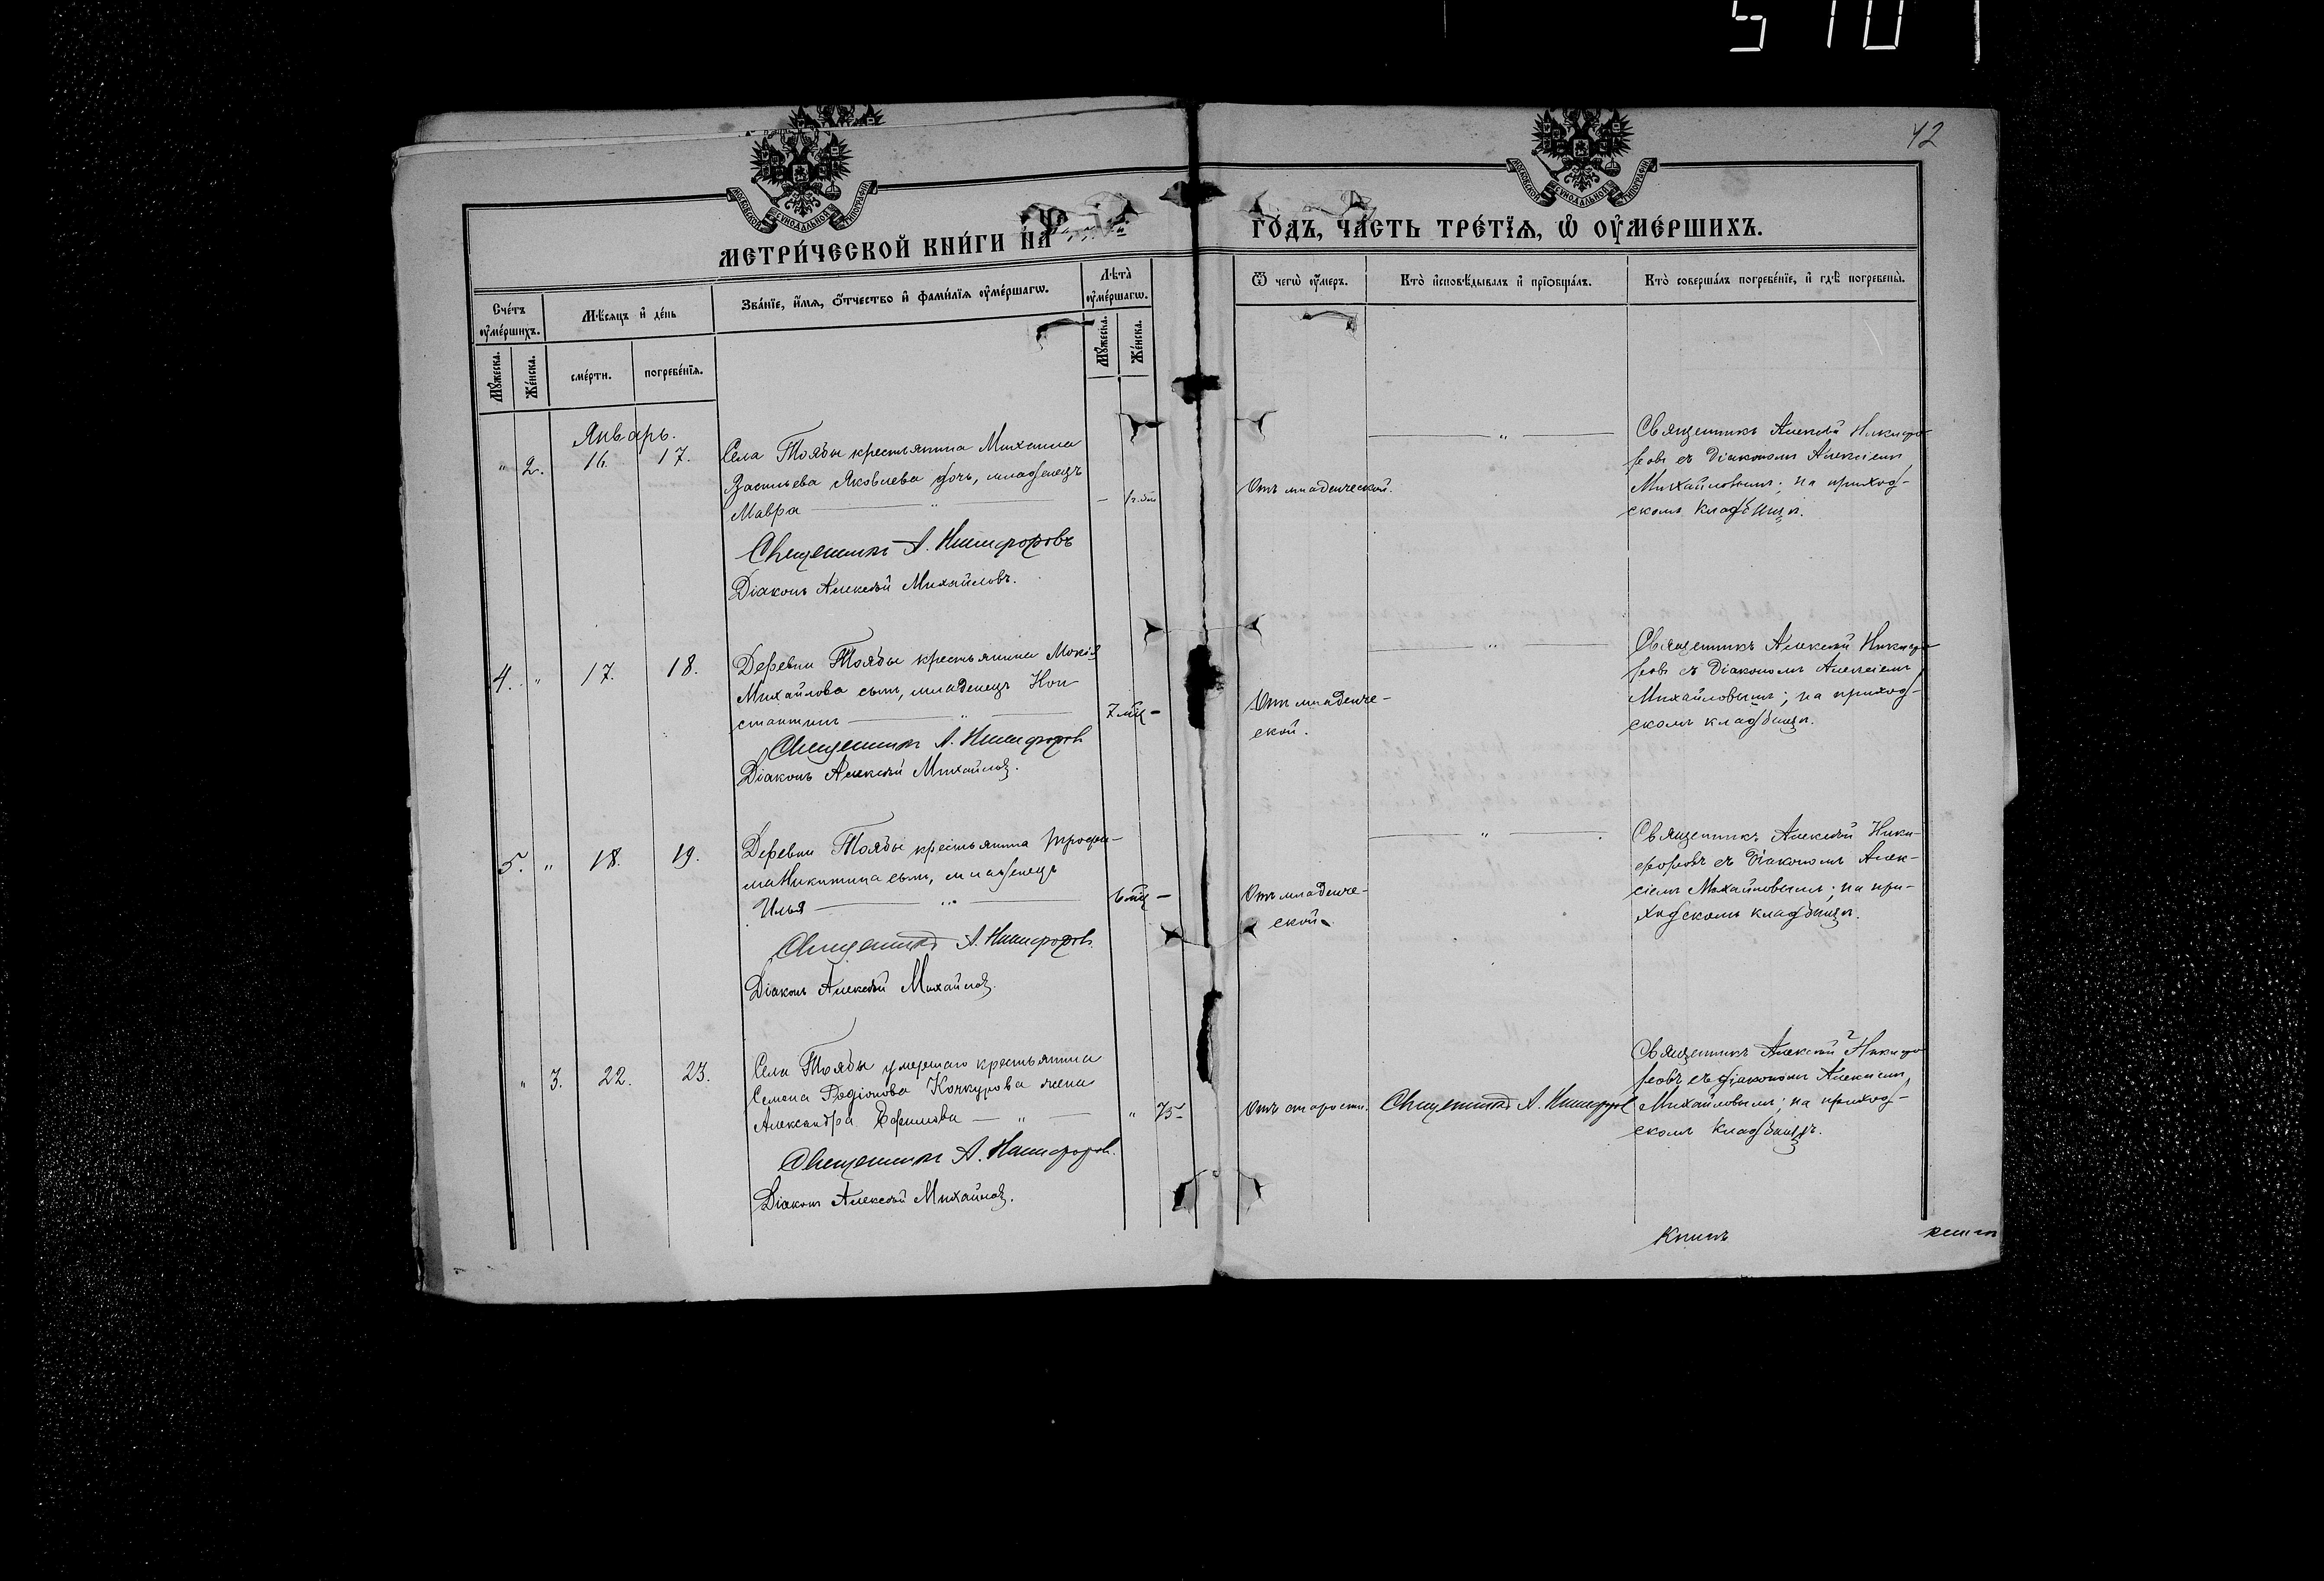 5101
42
МОСКОВСКОЙ СѴНОДАЛЬНОЙ ТИПОГРАФІИ
МОСКОВСКОЙ СѴНОДАЛЬНОЙ ТИПОГРАФІИ
МЕТРИ́ЧЕСКОЙ КНИ́ГИ НА
ГО́ДЪ, ЧА́СТЬ ТРЕ́ТЇѦ, Ѡ҆ ОУ҆МЕ́РШИХЪ.
Сче́тъ оу҆ме́ршихъ.
Мꙋ́жеска.
Же́нска.
Мѣ́сѧцъ и҆ де́нь
сме́рти.
погребе́нїѧ.
Зва́нїе, и҆́мѧ, ѻ҆́тчество и҆ фами́лїѧ оу҆ме́ршагѡ.
Лѣ́та оу҆ме́ршагѡ.
Мꙋ́жеска.
Же́нска.
Ѿ чегѡ̀ оу҆́меръ.
Кто̀ и҆сповѣ́дывалъ и҆ прїѡбща́лъ.
Кто̀ соверша́лъ погребе́нїе, и҆ гдѣ̀ погребены̀.
Январь.
" 2. 16. 17.
Села Тоябы крестьянина Михаила
Васильева Яковлева дочь, младенецъ
Мавра — " —
Священникъ А. Никифоровъ
Діаконъ Алексѣй Михайловъ.
Отъ младенческой.
— " —
Священникъ Алексѣй Никифо
ровъ съ діакономъ Алексіемъ
Михайловымъ; на приход-
скомъ кладбищѣ.
4. " 17. 18.
Деревни Тоябы крестьянина Мокія
Михайлова сынъ, младенецъ Кон
стантинъ — " — 7 мѣц —
Священникъ А. Никифоровъ
Діаконъ Алексѣй Михайловъ.
Отъ младенче-
ской.
— " —
Священникъ Алексѣй Никифо
ровъ съ діакономъ Алексіемъ
Михайловымъ; на приход-
скомъ кладбищѣ.
5. " 18. 19.
Деревни Тоябы крестьянина Трофи-
ма Никитина сынъ, младенецъ
Илья — " — 6 мѣц —
Священникъ А. Никифоровъ
Діаконъ Алексѣй Михайловъ.
Отъ младенче-
ской.
— " —
Священникъ Алексѣй Ники-
форовъ съ діакономъ Алек-
сіемъ Михайловымъ; на при-
ходскомъ кладбищѣ.
" 3. 22. 23.
Села Тоябы умершаго крестьянина
Семена Родіонова Кочкурова жена
Александра Ефимова — " — " 75
Священникъ А. Никифоровъ.
Діаконъ Алексѣй Михайловъ.
Отъ старости.
Священникъ А. Никифоровъ
Священникъ Алексѣй Никифо
ровъ съ діакономъ Алексіемъ
Михайловымъ; на приход-
скомъ кладбищѣ.